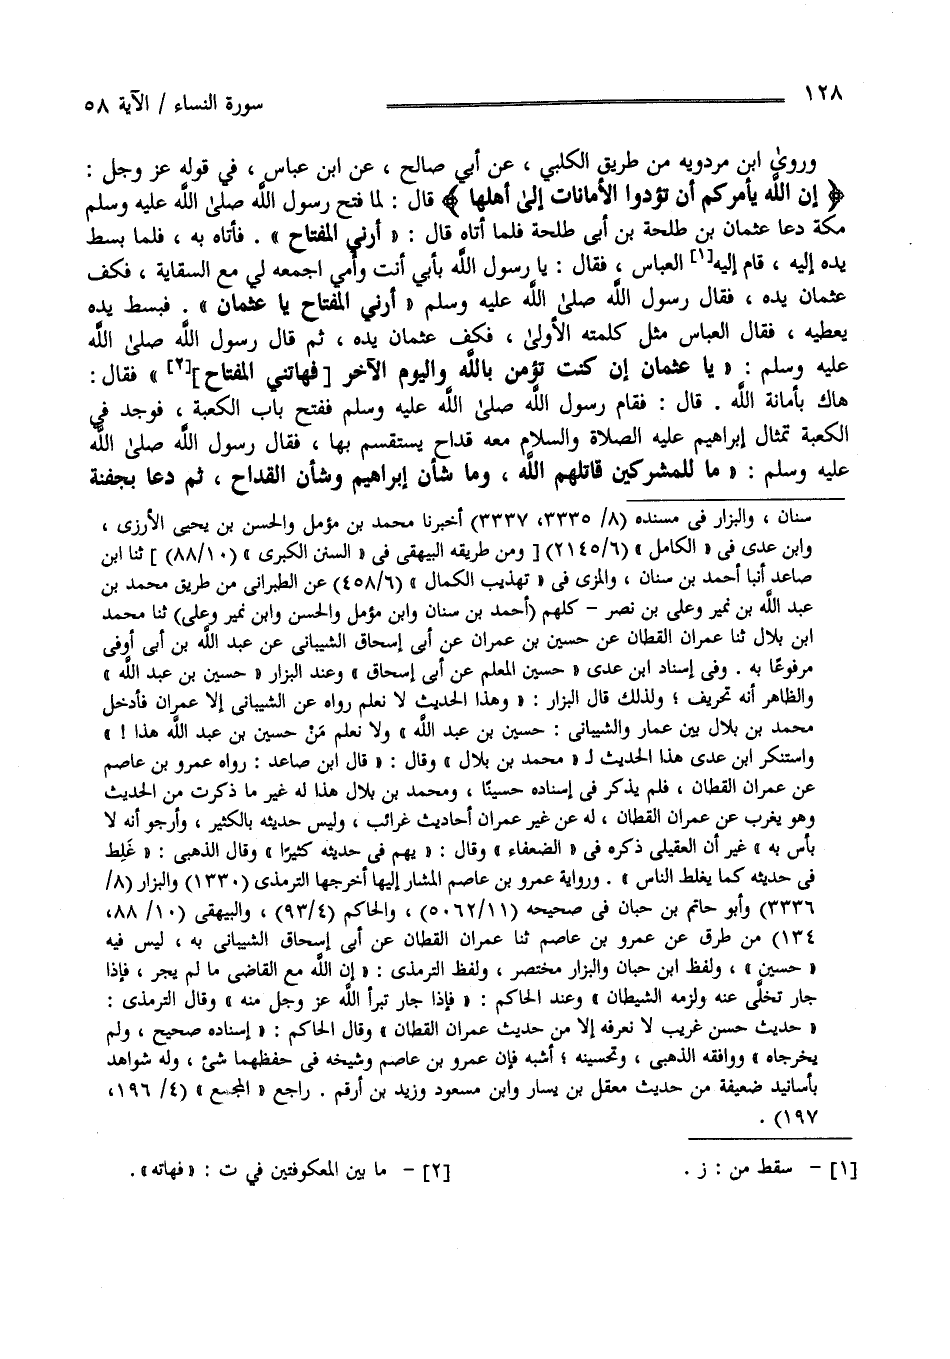 ١٢٨ سورة النساء / الآية ٥٨
وروىٰ ابن مردويه من طريق الكلبي ، عن أبي صالح ، عن ابن عباس ، في قوله عز وجل :
﴿ إن اللَّه يأمركم أن تؤدوا الأمانات إلىٰ أهلها ﴾ قال : لما فتح رسول اللَّه صلىٰ اللَّه عليه وسلم
مكة دعا عثمان بن طلحة بن أبى طلحة فلما أتاه قال : « أرني المفتاح » . فأتاه به ، فلما بسط
يده إليه ، قام إليه[١] العباس ، فقال : يا رسول اللَّه بأبي أنت وأمي اجمعه لي مع السقاية ، فكف
عثمان يده ، فقال رسول اللَّه صلىٰ اللَّه عليه وسلم « أرني المفتاح يا عثمان » . فبسط يده
يعطيه ، فقال العباس مثل كلمته الأولىٰ ، فكف عثمان يده ، ثم قال رسول اللَّه صلىٰ اللَّه
عليه وسلم : « يا عثمان إن كنت تؤمن باللَّه واليوم الآخر [فهاتني المفتاح][٢] » فقال :
هاك بأمانة اللَّه . قال : فقام رسول اللَّه صلىٰ اللَّه عليه وسلم ففتح باب الكعبة ، فوجد في
الكعبة تمثال إبراهيم عليه الصلاة والسلام معه قداح يستقسم بها ، فقال رسول اللَّه صلىٰ اللَّه
عليه وسلم : « ما للمشركين قاتلهم اللَّه ، وما شأن إبراهيم وشأن القداح ، ثم دعا بجفنة
سنان ، والبزار فى مسنده (٨/ ٣٣٣٥، ٣٣٣٧) أخبرنا محمد بن مؤمل والحسن بن يحيى الأرزى ،
وابن عدى فى « الكامل » (٢١٤٥/٦) [ ومن طريقه البيهقى فى « السنن الكبرى » (٨٨/١٠) ] ثنا ابن
صاعد أنبا أحمد بن سنان ، والمزى فى « تهذيب الكمال » (٤٥٨/٦) عن الطبرانى من طريق محمد بن
عبد اللَّه بن نمير وعلى بن نصر – كلهم (أحمد بن سنان وابن مؤمل والحسن وابن نمير وعلى) ثنا محمد
ابن بلال ثنا عمران القطان عن حسين بن عمران عن أبى إسحاق الشيبانى عن عبد اللَّه بن أبى أوفى
مرفوعًا به . وفى إسناد ابن عدى « حسين المعلم عن أبى إسحاق » وعند البزار « حسين بن عبد اللَّه »
والظاهر أنه تحريف ؛ ولذلك قال البزار : « وهذا الحديث لا نعلم رواه عن الشيبانى إلا عمران فأدخل
محمد بن بلال بين عمار والشيبانى : حسين بن عبد اللَّه » ولا نعلم مَنْ حسين بن عبد اللَّه هذا ! »
واستنكر ابن عدى هذا الحديث لـ « محمد بن بلال » وقال : « قال ابن صاعد : رواه عمرو بن عاصم
عن عمران القطان ، فلم يذكر فى إسناده حسينًا ، ومحمد بن بلال هذا له غير ما ذكرت من الحديث
وهو يغرب عن عمران القطان ، له عن غير عمران أحاديث غرائب ، وليس حديثه بالكثير ، وأرجو أنه لا
بأس به » غير أن العقيلى ذكره فى « الضعفاء » وقال : « يهم فى حديثه كثيرًا » وقال الذهبى : « غَلِط
فى حديثه كما يغلط الناس » . ورواية عمرو بن عاصم المشار إليها أخرجها الترمذى (١٣٣٠) والبزار (٨/
٣٣٣٦) وأبو حاتم بن حبان فى صحيحه (٥٠٦٢/١١) ، والحاكم (٩٣/٤) ، والبيهقى (١٠/ ٨٨،
١٣٤) من طرق عن عمرو بن عاصم ثنا عمران القطان عن أبى إسحاق الشيبانى به ، ليس فيه
« حسين » ، ولفظ ابن حبان والبزار مختصر ، ولفظ الترمذى : « إن اللَّه مع القاضى ما لم يجر ، فإذا
جار تخلَّى عنه ولزمه الشيطان » وعند الحاكم : « فإذا جار تبرأ اللَّه عز وجل منه » وقال الترمذى :
« حديث حسن غريب لا نعرفه إلا من حديث عمران القطان » وقال الحاكم : « إسناده صحيح ، ولم
يخرجاه » ووافقه الذهبى ، وتحسينه ؛ أشبه فإن عمرو بن عاصم وشيخه فى حفظهما شئ ، وله شواهد
بأسانيد ضعيفة من حديث معقل بن يسار وابن مسعود وزيد بن أرقم . راجع « المجمع » (٤/ ١٩٦،
١٩٧) .
[١] – سقط من : ز . [٢] – ما بين المعكوفتين في ت : « فهاته» .